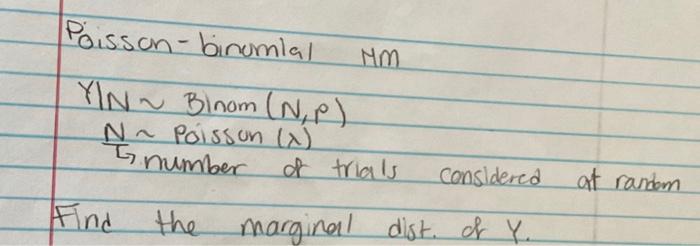 Poisson-binomial HM
Y|N ~ Binom (N, p)
N ~ Poisson (λ)
↳ number of trials considered at random
Find the marginal dist. of Y.